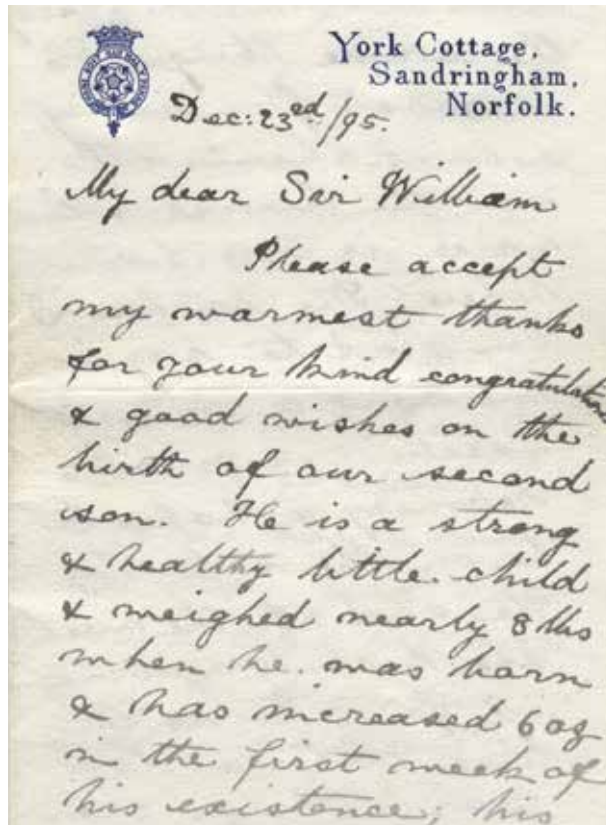 York Cottage,
Sandringham,
Norfolk.
Dec: 23ed/95.
My dear Sir William
Please accept
my warmest thanks
for your kind congratulations
& good wishes on the
birth of our second
son. He is a strong
& healthy little child
& weighed nearly 8 lbs
when he was born
& has increased 6 oz
in the first week of
his existence; his